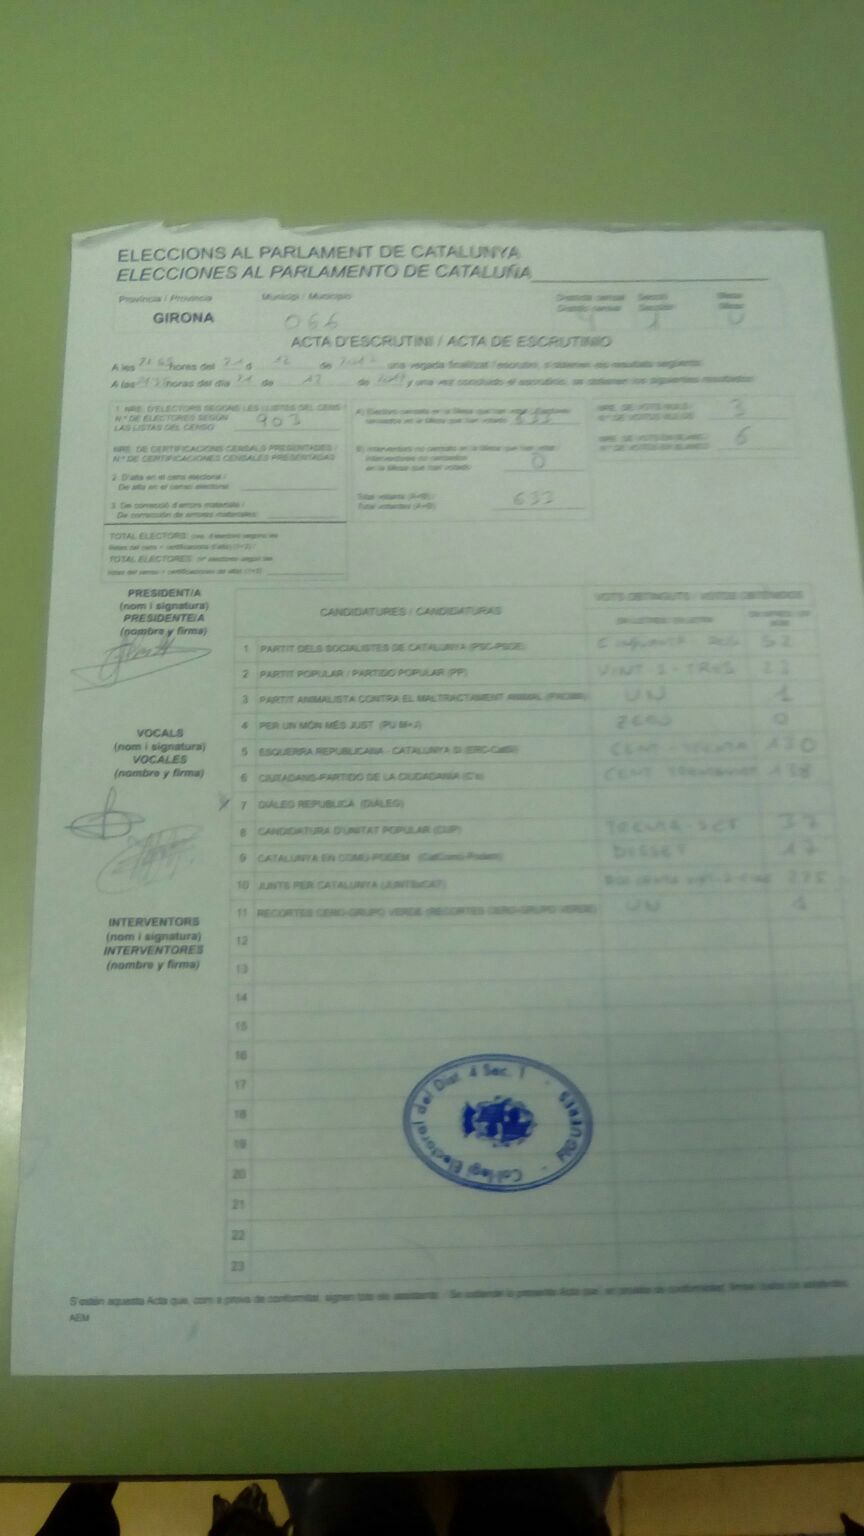 ELECCIONS AL PARLAMENT DE CATALUNYA
ELECCIONES AL PARLAMENTO DE CATALUÑA
Província / Provincia
Municipi / Municipio
Districte censal Secció Mesa
Distrito censal Sección Mesa
GIRONA
066
4 1 U
ACTA D'ESCRUTINI / ACTA DE ESCRUTINIO
A les hores del 21 d 12 de una vegada finalitzat l'escrutini, s'obtenen els resultats següents:
A las horas del día 21 de 12 de y una vez concluido el escrutinio, se obtienen los siguientes resultados:
1. NRE. D'ELECTORS SEGONS LES LLISTES DEL CENS /
N.º DE ELECTORES SEGÚN
LAS LISTAS DEL CENSO
903
NRE. DE CERTIFICACIONS CENSALS PRESENTADES /
N.º DE CERTIFICACIONES CENSALES PRESENTADAS
2. D'alta en el cens electoral /
De alta en el censo electoral:
3. De correcció d'errors materials /
De corrección de errores materiales:
TOTAL ELECTORS:
TOTAL ELECTORES:
A) Electors censats en la Mesa que han votat / Electores
censados en la Mesa que han votado
633
B) Interventors no censats en la Mesa que han votat /
Interventores no censados
en la Mesa que han votado
0
Total votants (A+B) /
Total votantes (A+B)
633
NRE. DE VOTS NULS /
N.º DE VOTOS NULOS
3
NRE. DE VOTS EN BLANC /
N.º DE VOTOS EN BLANCO
6
PRESIDENT/A
(nom i signatura)
PRESIDENTE/A
(nombre y firma)
VOCALS
(nom i signatura)
VOCALES
(nombre y firma)
INTERVENTORS
(nom i signatura)
INTERVENTORES
(nombre y firma)
CANDIDATURES / CANDIDATURAS
VOTS OBTINGUTS / VOTOS OBTENIDOS
1 PARTIT DELS SOCIALISTES DE CATALUNYA (PSC-PSOE) 52
2 PARTIT POPULAR / PARTIDO POPULAR (PP) VINT-I-TRES 23
3 PARTIT ANIMALISTA CONTRA EL MALTRACTAMENT ANIMAL (PACMA) UN 1
4 PER UN MÓN MÉS JUST (PUM+J) ZERO 0
5 ESQUERRA REPUBLICANA - CATALUNYA SÍ (ERC-CatSí) CENT-TRENTA 130
6 CIUTADANS-PARTIDO DE LA CIUDADANÍA (C's) CENT TRENTAVUIT 138
7 DIÀLEG REPÚBLICA (DIÀLEG)
8 CANDIDATURA D'UNITAT POPULAR (CUP) TRENTA-SET 37
9 CATALUNYA EN COMÚ-PODEM (CatComú-Podem) DISSET 17
10 JUNTS PER CATALUNYA (JUNTSxCAT) 225
11 RECORTES CERO-GRUPO VERDE (RECORTES CERO-GRUPO VERDE) UN 1
12
13
14
15
16
17
18
19
20
21
22
23
Col·legi Electoral del Dist. 4 Sec. 1 - FIGUERES -
S'estén aquesta Acta que, com a prova de conformitat, signen tots els assistents. / Se extiende la presente Acta que, en prueba de conformidad, firman todos los asistentes.
AEM